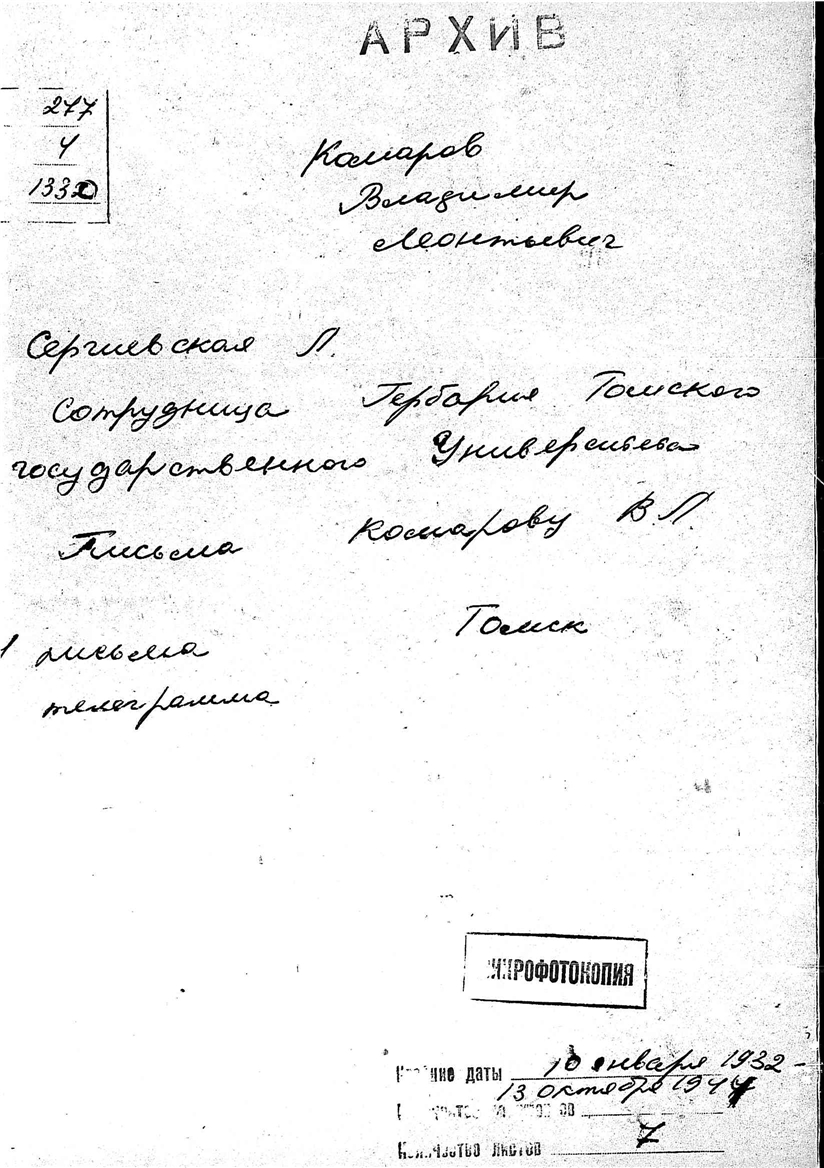 АРХИВ
277
4
1330
Комаров
Владимир
Леонтьевич
Сергиевская Л.
Сотрудница Гербария Томского
государственного Университета
Письма Комарову В Л.
Томск
письма
телеграмма
МИКРОФОТОКОПИЯ
Крайние даты 10 января 1932 -
13 октября 1944
Количество листов 7